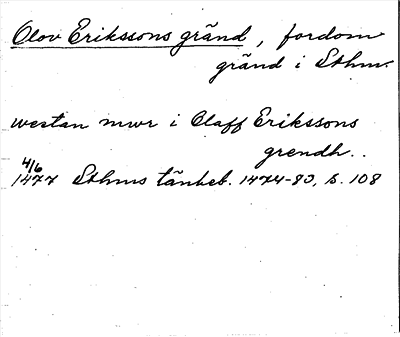 Olov Erikssons gränd, fordom
gränd i Sthm.
westan mwr i Olaff Erikssons
grendh..
4/6
1477 Sthms tänkeb. 1474-83, s. 108